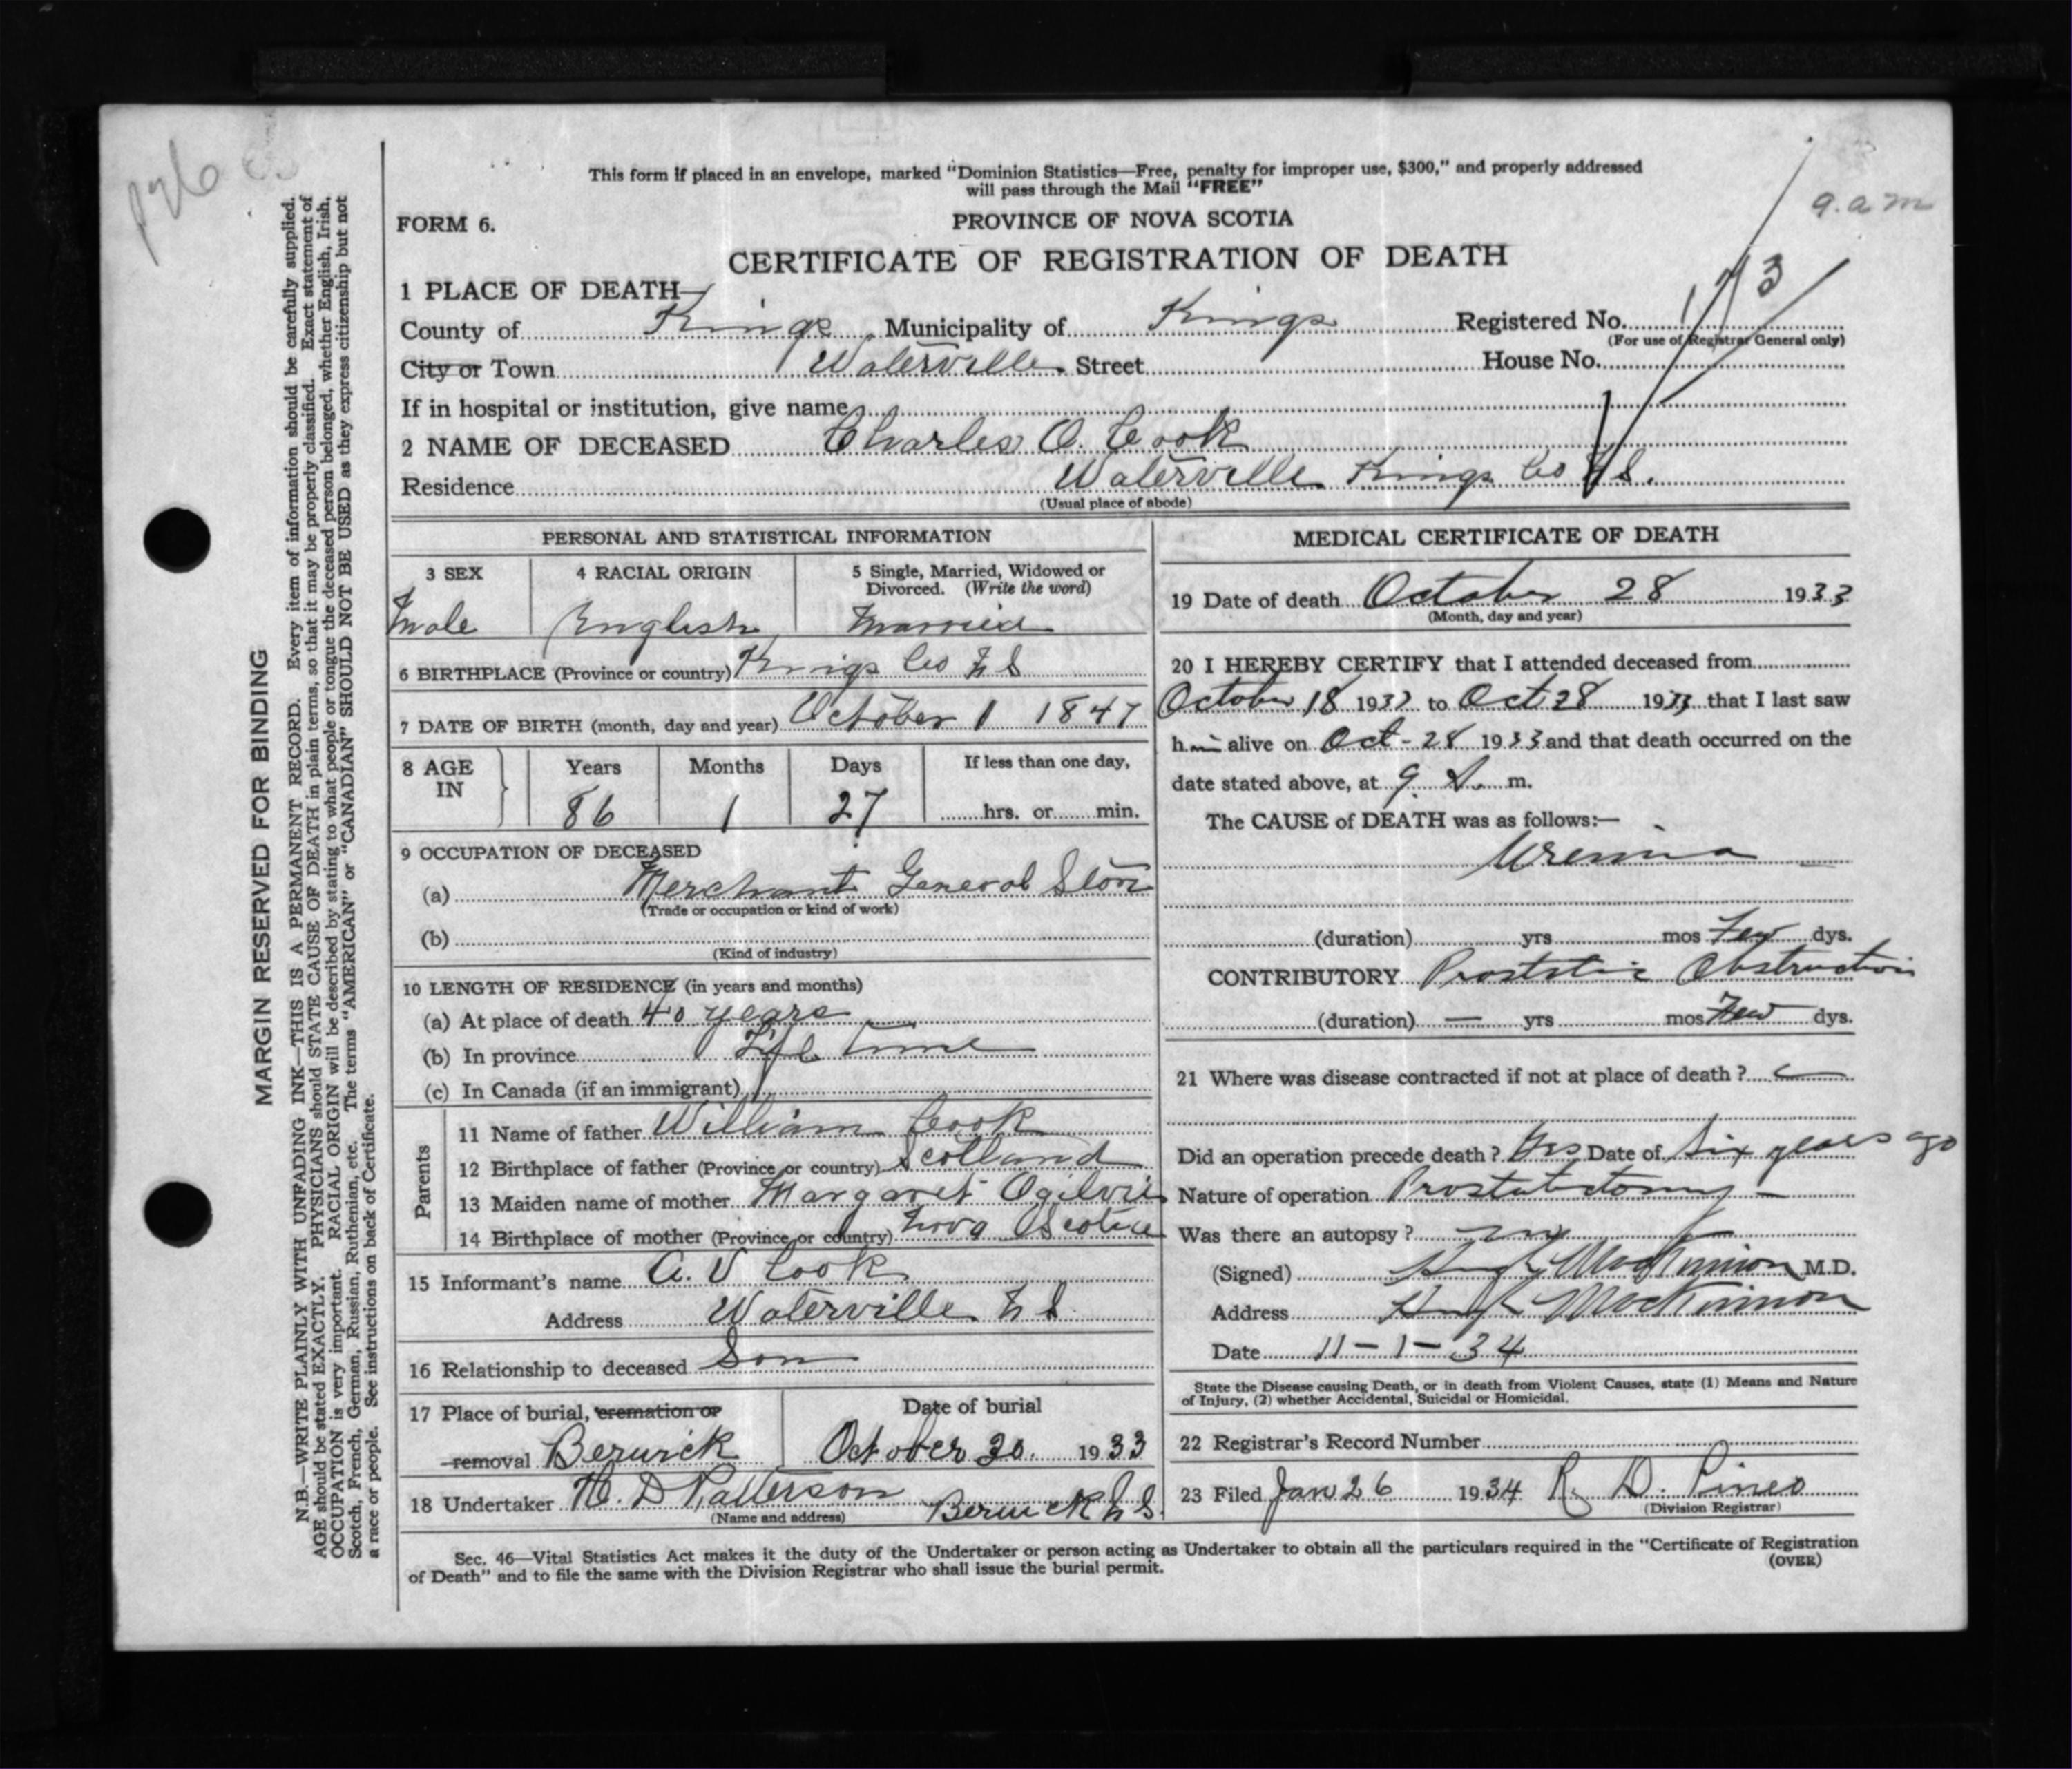 This form if placed in an envelope, marked "Dominion Statistics—Free, penalty for improper use, $300," and properly addressed
will pass through the Mail "FREE"
9. a m
FORM 6.
PROVINCE OF NOVA SCOTIA
CERTIFICATE OF REGISTRATION OF DEATH
1 PLACE OF DEATH—
County of Kings Municipality of Kings Registered No. 173
(For use of Registrar General only)
City or Town Waterville Street House No.
If in hospital or institution, give name
2 NAME OF DECEASED Charles O. Cook
Residence Waterville Kings Co N S.
(Usual place of abode)
PERSONAL AND STATISTICAL INFORMATION
3 SEX 4 RACIAL ORIGIN 5 Single, Married, Widowed or
Divorced. (Write the word)
Male English Married
6 BIRTHPLACE (Province or country) Kings Co N S
7 DATE OF BIRTH (month, day and year) October 1 1847
8 AGE IN Years Months Days If less than one day,
86 1 27 hrs. or min.
9 OCCUPATION OF DECEASED
(a) Merchant General Store
(Trade or occupation or kind of work)
(b)
(Kind of industry)
10 LENGTH OF RESIDENCE (in years and months)
(a) At place of death 40 years
(b) In province Life time
(c) In Canada (if an immigrant)
Parents
11 Name of father William Cook
12 Birthplace of father (Province or country) Scotland
13 Maiden name of mother Margaret Ogilvie
14 Birthplace of mother (Province or country) Nova Scotia
15 Informant's name A. V Cook
Address Waterville N S
16 Relationship to deceased Son
17 Place of burial, cremation or Date of burial
removal Berwick October 30. 1933
18 Undertaker H. D Patterson Berwick N S.
(Name and address)
MEDICAL CERTIFICATE OF DEATH
19 Date of death October 28 1933
(Month, day and year)
20 I HEREBY CERTIFY that I attended deceased from
October 18 1933 to Oct 28 1933 that I last saw
him alive on Oct - 28 1933 and that death occurred on the
date stated above, at 9. A. m.
The CAUSE of DEATH was as follows:—
Uremia
(duration) yrs mos Few dys.
CONTRIBUTORY Prostatic Obstruction
(duration) — yrs mos Few dys.
21 Where was disease contracted if not at place of death?
Did an operation precede death? Yes Date of Six years ago
Nature of operation Prostatectomy —
Was there an autopsy? no
(Signed) Hugh MacKinnon M.D.
Address Hugh MacKinnon
Date 11 - 1 - 34
State the Disease causing Death, or in death from Violent Causes, state (1) Means and Nature
of Injury, (2) whether Accidental, Suicidal or Homicidal.
22 Registrar's Record Number
23 Filed Jan 26 1934 R. D. Pineo
(Division Registrar)
Sec. 46—Vital Statistics Act makes it the duty of the Undertaker or person acting as Undertaker to obtain all the particulars required in the "Certificate of Registration
of Death" and to file the same with the Division Registrar who shall issue the burial permit.
(OVER)
MARGIN RESERVED FOR BINDING
N.B.—WRITE PLAINLY WITH UNFADING INK—THIS IS A PERMANENT RECORD. Every item of information should be carefully supplied.
AGE should be stated EXACTLY. PHYSICIANS should STATE CAUSE OF DEATH in plain terms, so that it may be properly classified. Exact statement of
OCCUPATION is very important. RACIAL ORIGIN will be described by stating to what people or tongue the deceased person belonged, whether English, Irish,
Scotch, French, German, Russian, Ruthenian, etc. The terms "AMERICAN" or "CANADIAN" SHOULD NOT BE USED as they express citizenship but not
a race or people. See instructions on back of Certificate.